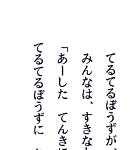 てるてるぼうずが、
みんなは、すきな
「あーした てんきに
てるてるぼうずに